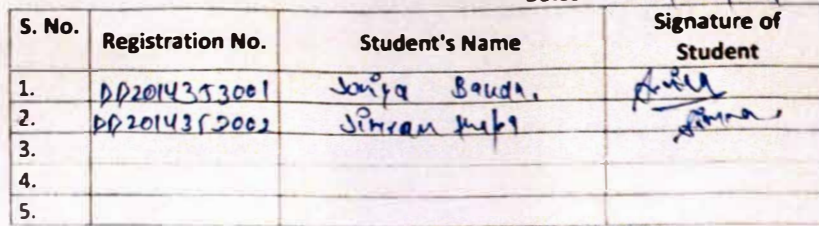 S. No. Registration No. Student's Name Signature of Student
1. DD2014353001 Soniya
2. DD2014353002 Simran
3.
4.
5.